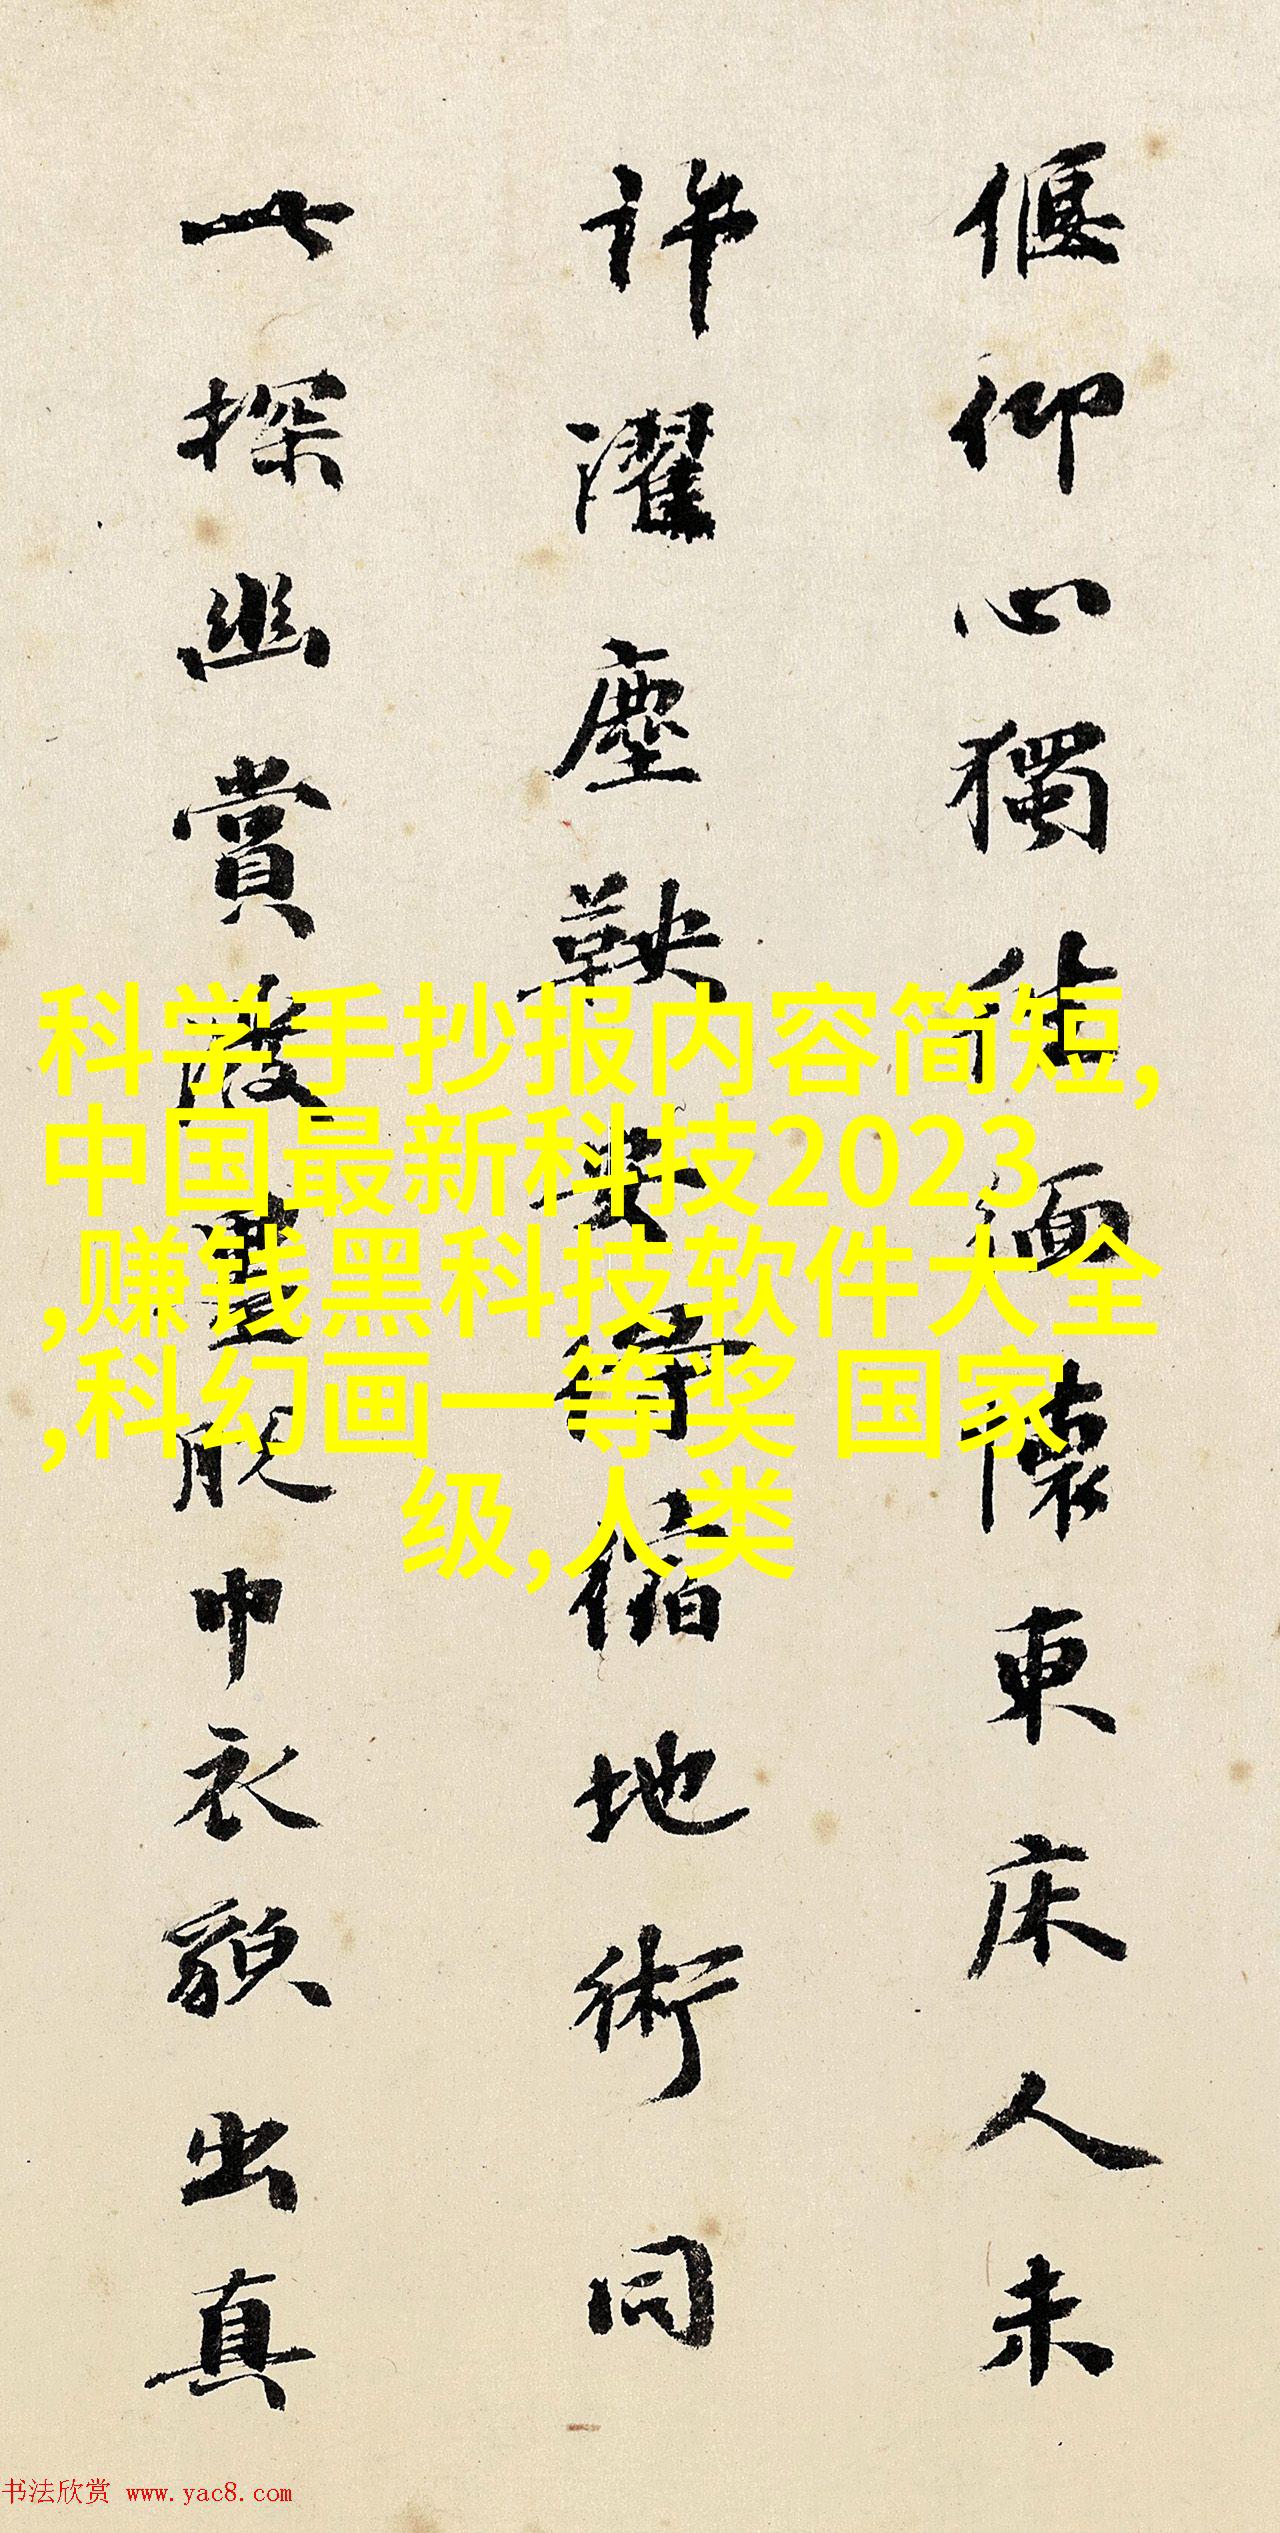 偃仰心獨結緬懷東床人未
許濯塵鞅安得偕地術同
一探幽賞散帙脫巾衣貌出真
科学手抄报内容简短,
中国最新科技2023
,赚钱黑科技软件大全
,科幻画一等奖 国家
级,人类
书法欣赏 www.yac8.com